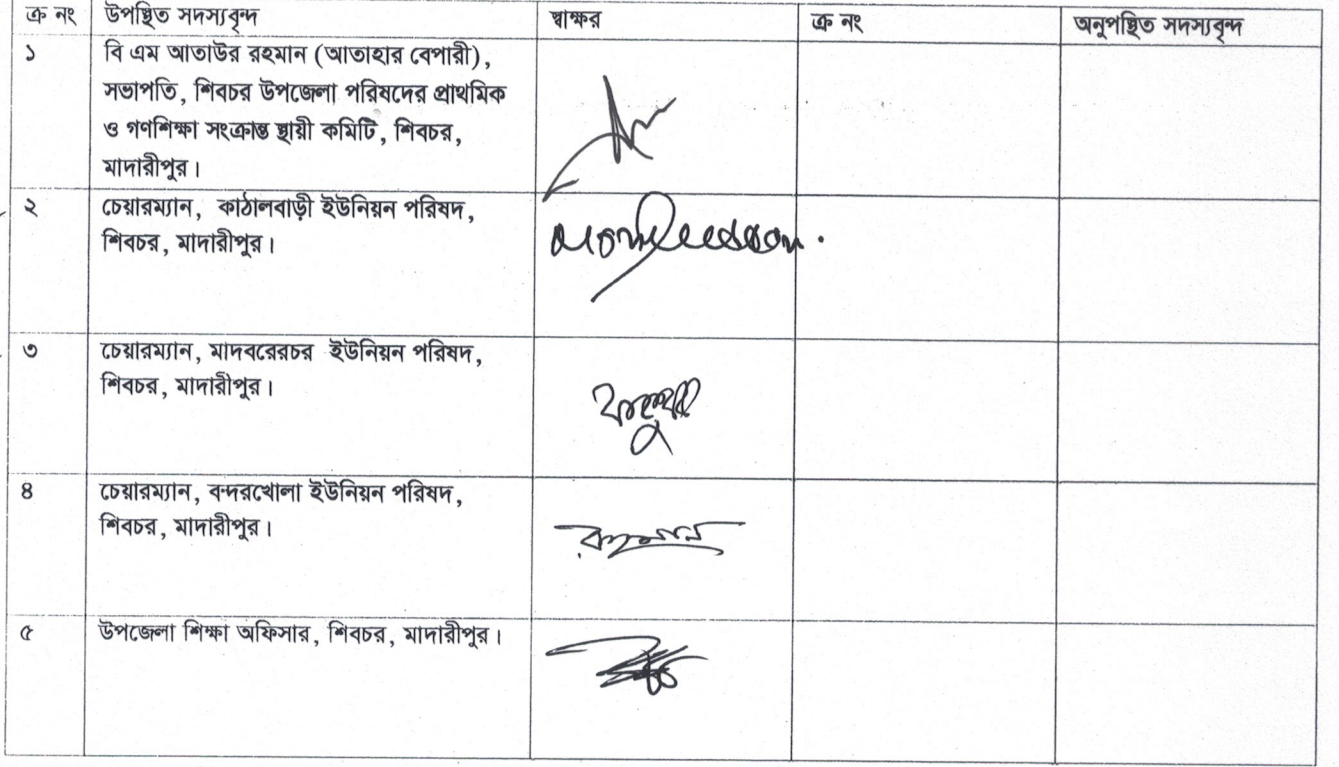 ক্র নং উপস্থিত সদস্যবৃন্দ স্বাক্ষর ক্র নং অনুপস্থিত সদস্যবৃন্দ
১ বি এম আতাউর রহমান (আতাহার বেপারী),
সভাপতি, শিবচর উপজেলা পরিষদের প্রাথমিক
ও গণশিক্ষা সংক্রান্ত স্থায়ী কমিটি, শিবচর,
মাদারীপুর।
২ চেয়ারম্যান, কাঠালবাড়ী ইউনিয়ন পরিষদ,
শিবচর, মাদারীপুর।
৩ চেয়ারম্যান, মাদবরেরচর ইউনিয়ন পরিষদ,
শিবচর, মাদারীপুর।
৪ চেয়ারম্যান, বন্দরখোলা ইউনিয়ন পরিষদ,
শিবচর, মাদারীপুর।
৫ উপজেলা শিক্ষা অফিসার, শিবচর, মাদারীপুর।